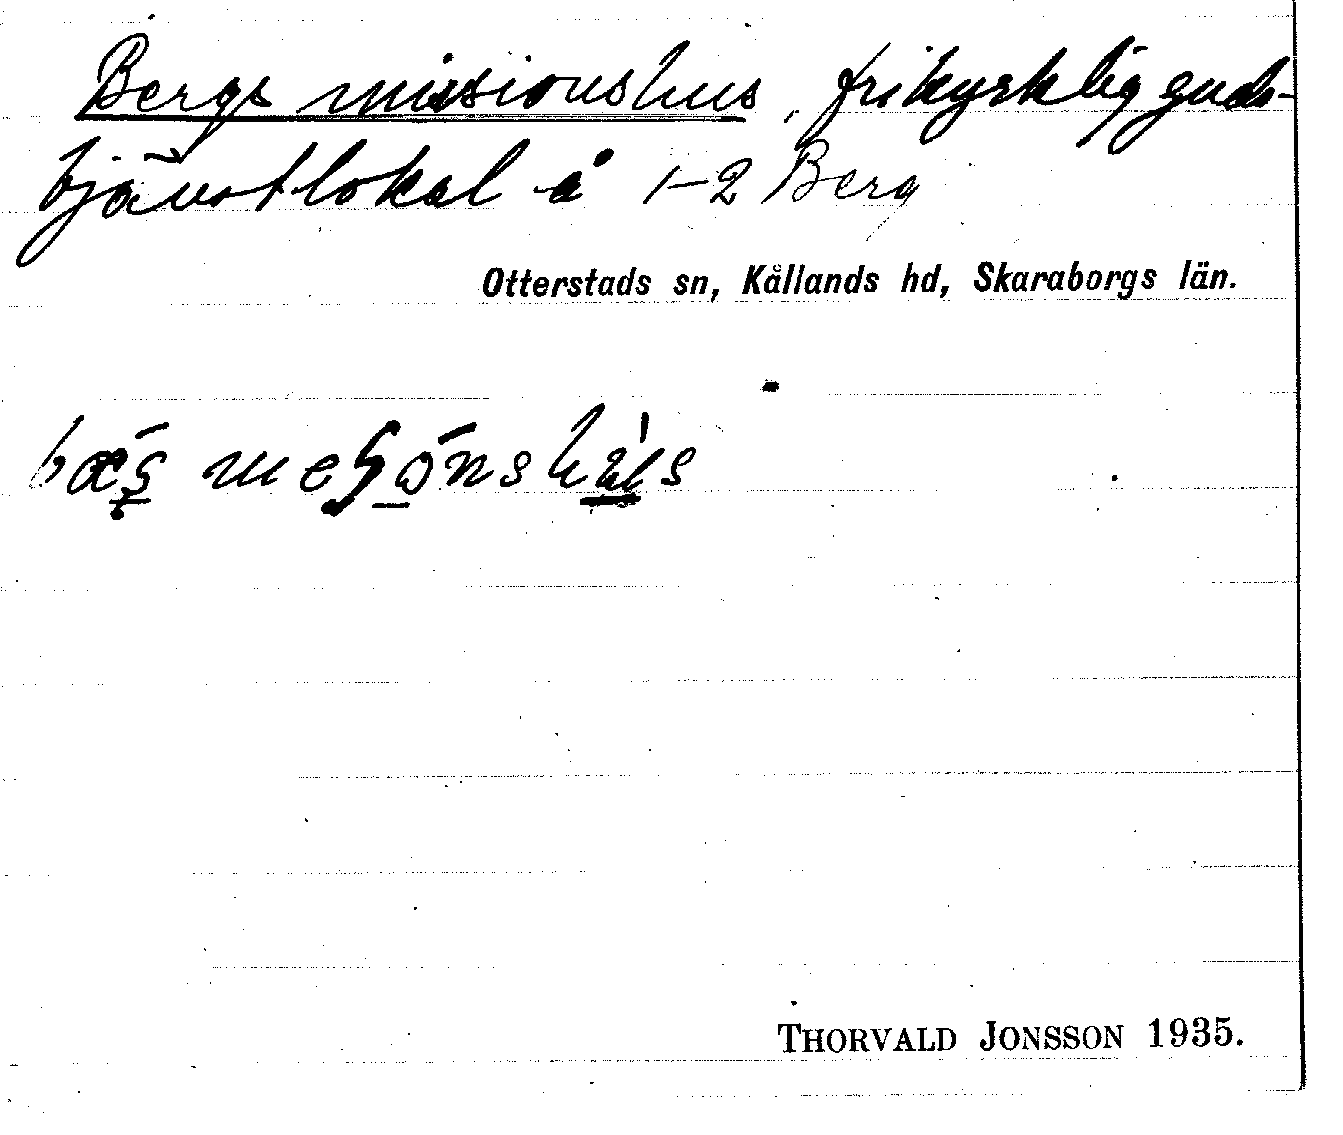 Bergs missionshus, frikyrklig guds-
tjänstlokal å 1-2 Berg
Otterstads sn, Kållands hd, Skaraborgs län.
THORVALD JONSSON 1935.